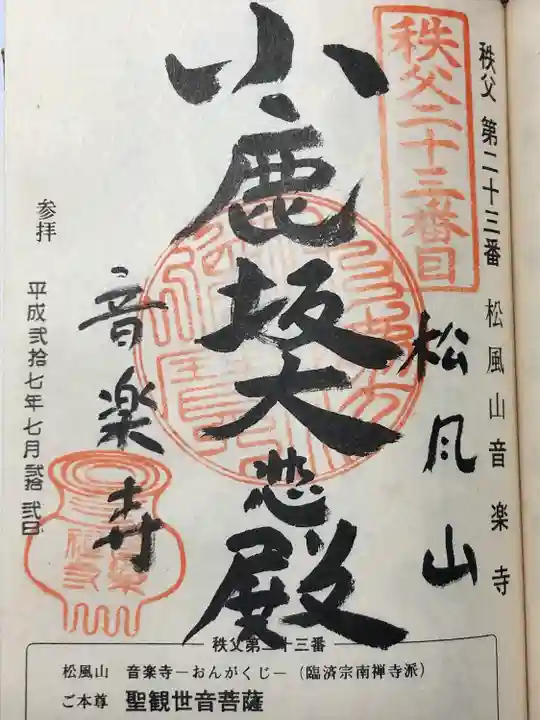 秩父 第二十三番 松風山音楽寺
秩父二十三番目
松風山
小鹿坂大悲殿
音楽寺
参拝 平成弐拾七年七月弐拾弐日
秩父第二十三番
松風山 音楽寺―おんがくじ―(臨済宗南禅寺派)
ご本尊 聖観世音菩薩